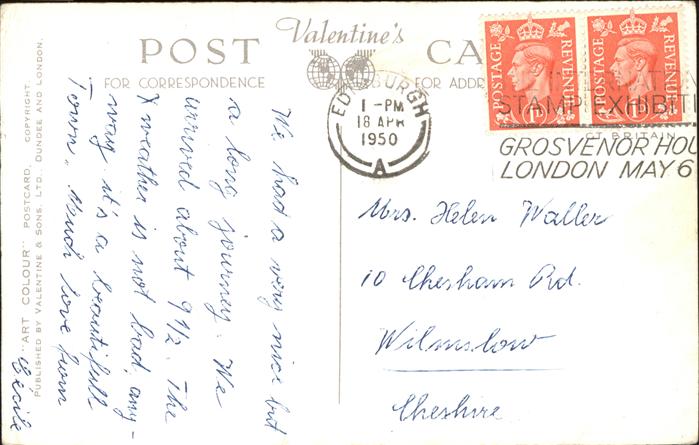 Valentine's
POST CA
FOR CORRESPONDENCE FOR ADDR
"ART COLOUR" POSTCARD. COPYRIGHT.
PUBLISHED BY VALENTINE & SONS, LTD., DUNDEE AND LONDON.
We had a very nice but
a long journey. We
arrived about 9 1/2. The
weather is not bad, any-
way it's a beautifull
Town. Much love from
Cécile
POSTAGE REVENUE
1D
POSTAGE REVENUE
1D
EDINBURGH
1 - PM
18 APR
1950
A
STAMP EXHIBIT
GT BRITAIN
GROSVENOR HOU
LONDON MAY 6
Mrs. Helen Waller
10 Chesham Rd.
Wilmslow
Cheshire